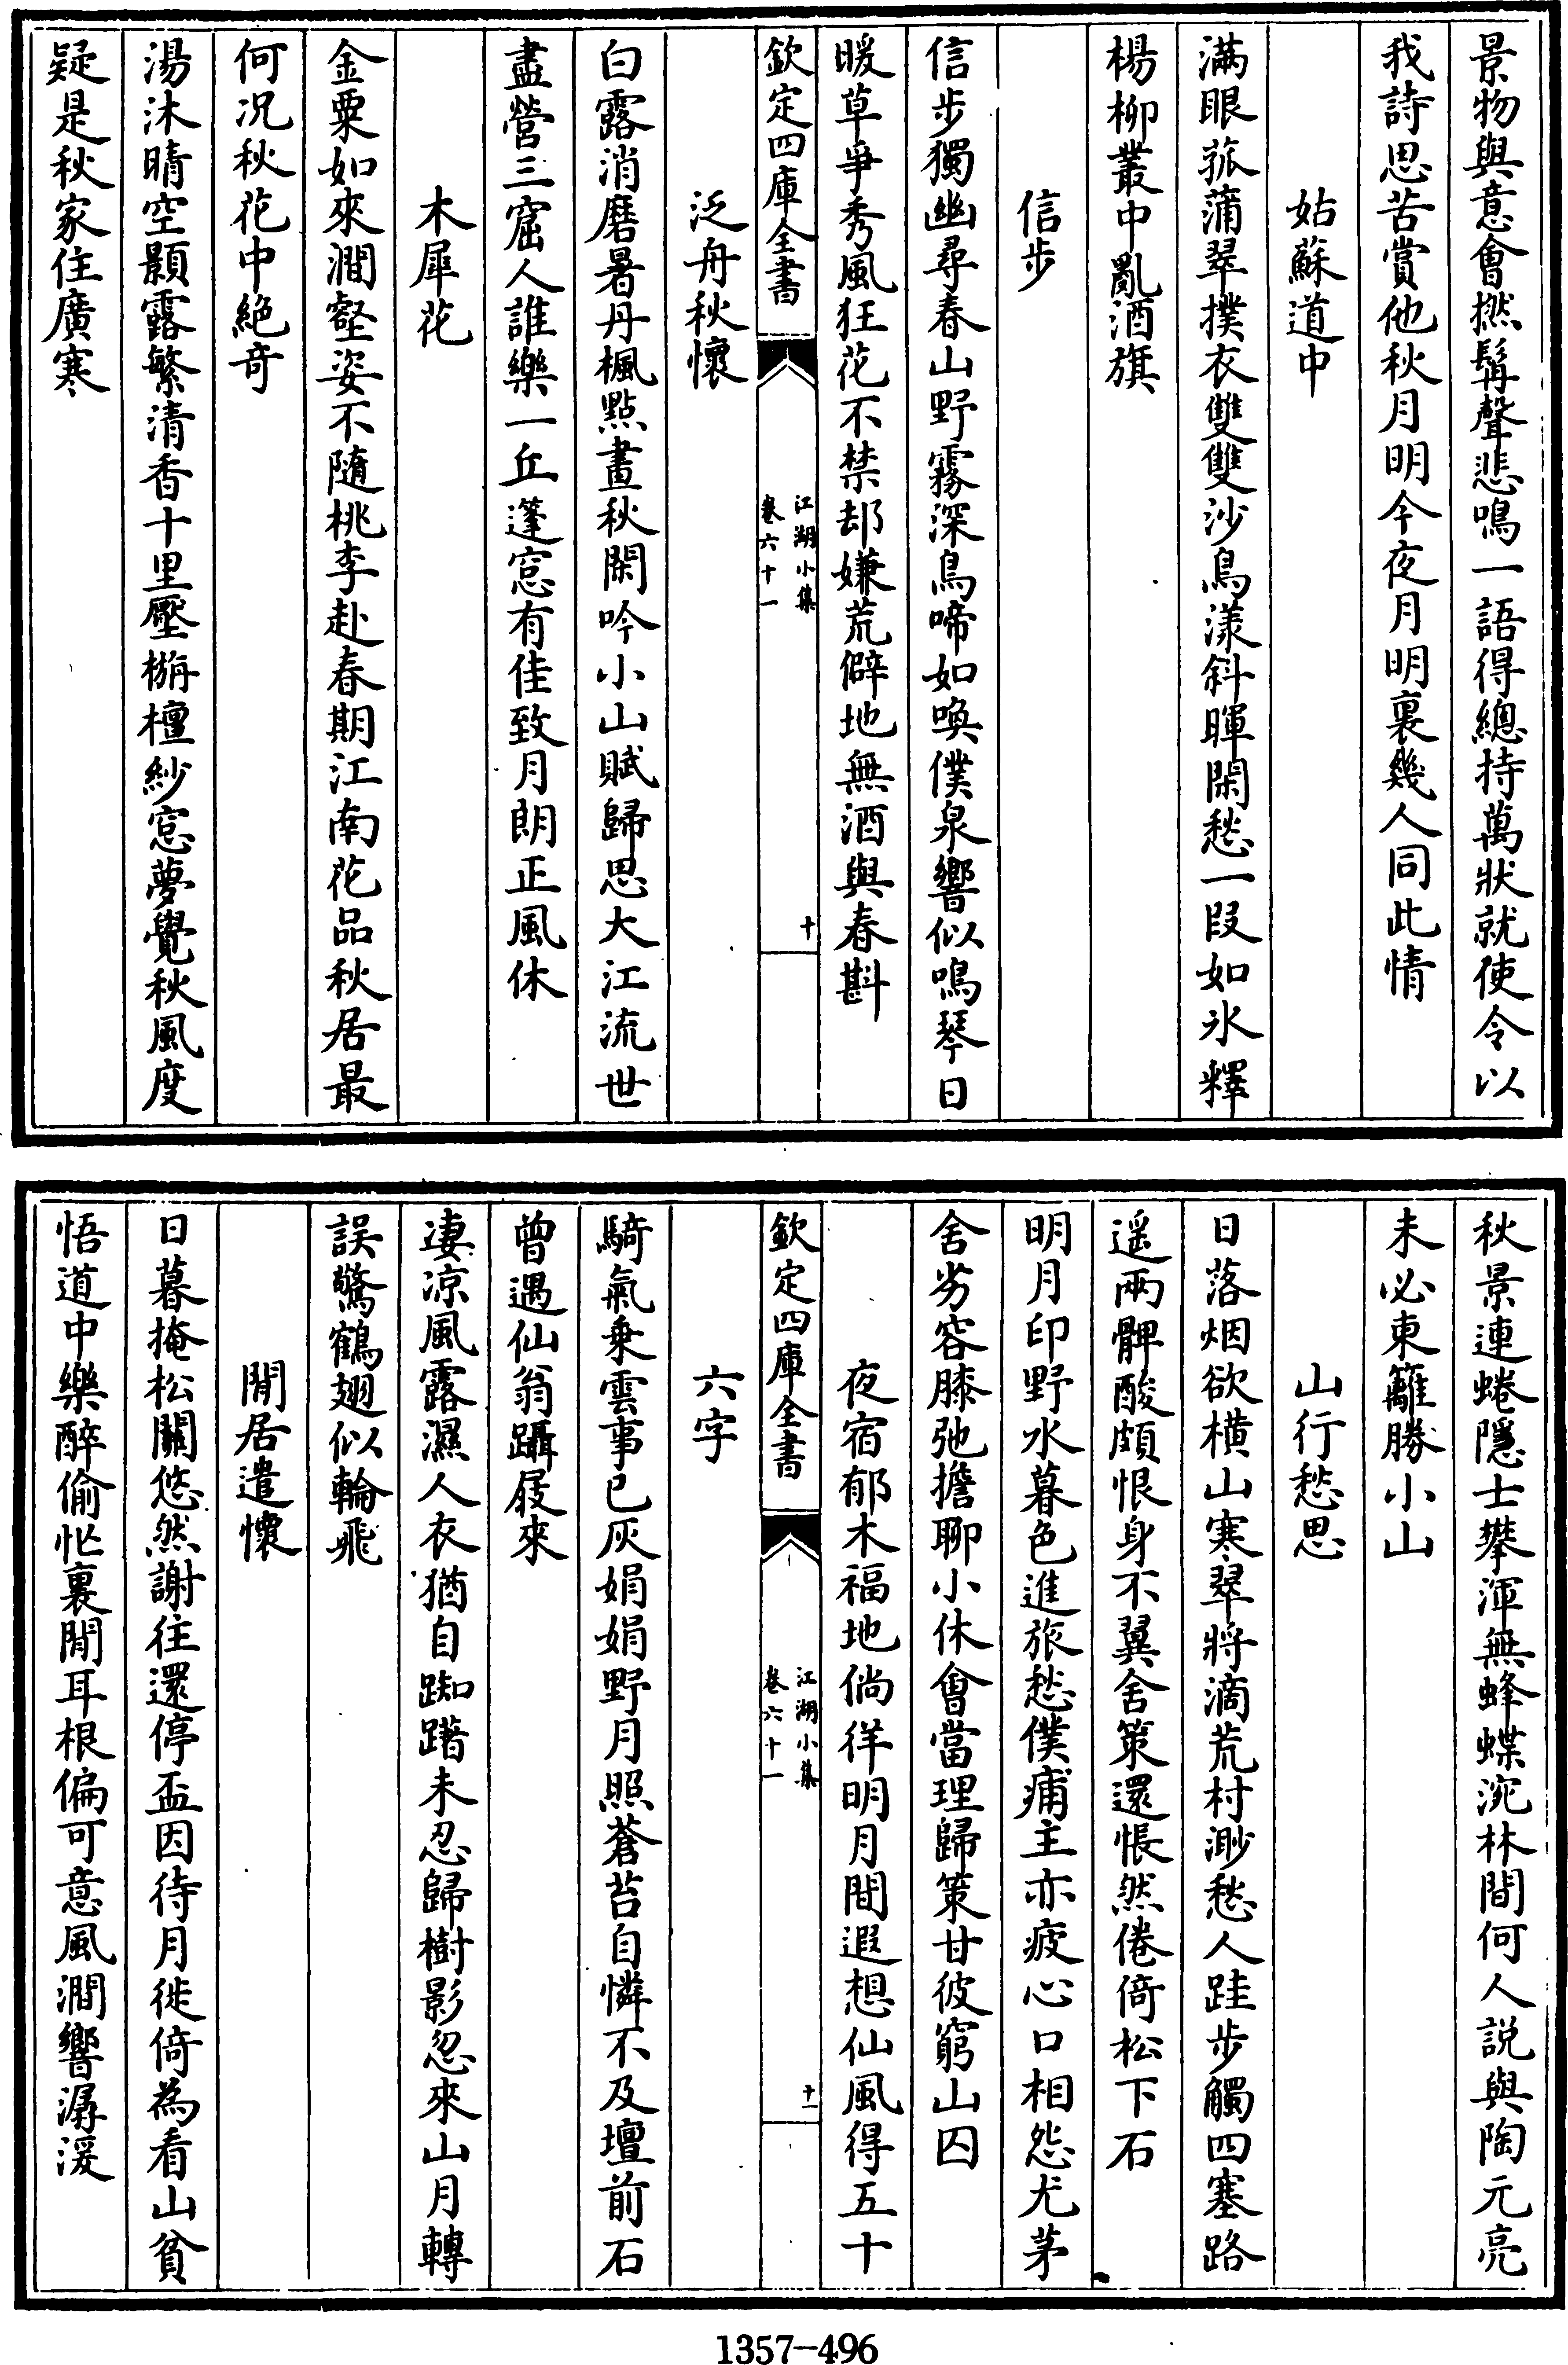 景物與意會撚髯聲悲鳴一語得總持萬狀就使令以
我詩思苦賞他秋月明今夜月明裏幾人同此情
姑蘇道中
滿眼菰蒲翠撲衣雙雙沙鳥漾斜暉閑愁一段如氷釋
楊柳叢中亂酒旗
信步
信步獨幽尋春山野霧深鳥啼如喚僕泉響似鳴琴日
暖草爭秀風狂花不禁却嫌荒僻地無酒與春斟
欽定四庫全書
江湖小集
卷六十一
十
泛舟秋懷
白露消磨暑丹楓點畫秋閑吟小山賦歸思大江流世
盡營三窟人誰樂一丘蓬窓有佳致月朗正風休
木犀花
金粟如來澗壑姿不隨桃李赴春期江南花品秋居最
何况秋花中絶奇
湯沐晴空顥露繁清香十里壓栴檀紗窓夢覺秋風度
疑是秋家住廣寒
秋景連蜷隱士攀渾無蜂蝶浼林間何人説與陶元亮
未必東籬勝小山
山行愁思
日落烟欲横山寒翠將滴荒村渺愁人跬步觸四塞路
遥兩髀酸頗恨身不翼舍策還悵然倦倚松下石
明月印野水暮色進旅愁僕痡主亦疲心口相怨尤茅
舍劣容膝弛擔聊小休會當理歸策甘彼窮山囚
夜宿郁木福地倘徉明月間遐想仙風得五十
六字
欽定四庫全書
江湖小集
卷六十一
十一
騎氣乗雲事已灰娟娟野月照蒼苔自憐不及壇前石
曾遇仙翁躡屐來
凄凉風露濕人衣猶自踟躇未忍歸樹影忽來山月轉
誤驚鶴翅似輪飛
閒居遣懷
日暮掩松關悠然謝往還停盃因待月徙倚為看山貧
悟道中樂醉偷忙裏閒耳根偏可意風澗響潺湲
1357-496